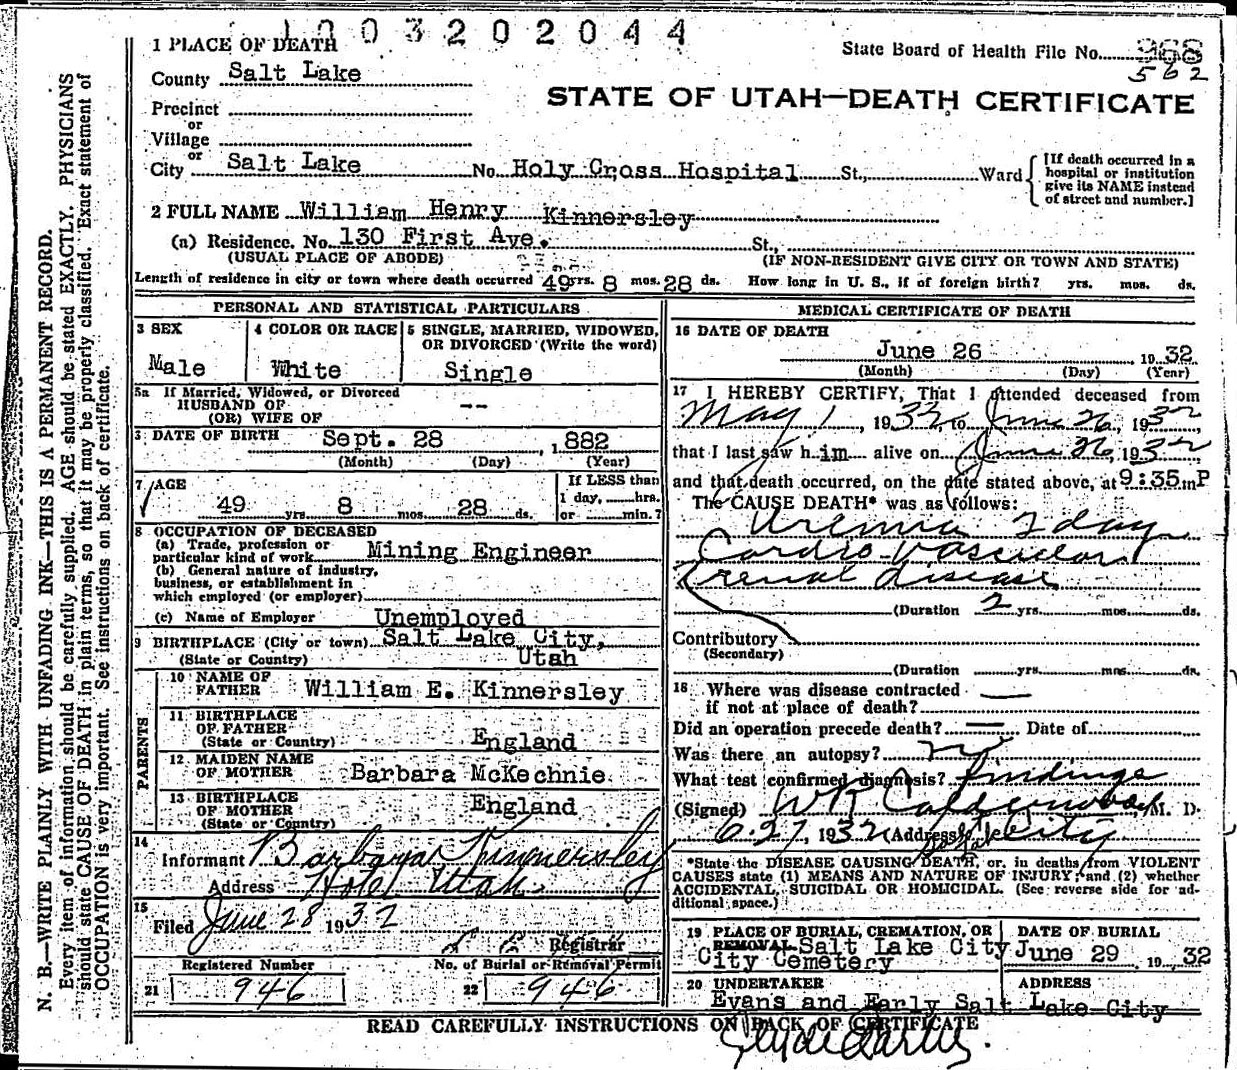 1003202044
State Board of Health File No. 968
562
STATE OF UTAH—DEATH CERTIFICATE
1 PLACE OF DEATH
County Salt Lake
Precinct
or
Village
or
City Salt Lake No. Holy Cross Hospital St., Ward
[If death occurred in a
hospital or institution
give its NAME instead
of street and number.]
2 FULL NAME William Henry Kinnersley
(a) Residence. No. 130 First Ave. St.,
(USUAL PLACE OF ABODE) (IF NON-RESIDENT GIVE CITY OR TOWN AND STATE)
Length of residence in city or town where death occurred 49 yrs. 8 mos. 28 ds. How long in U. S., if of foreign birth? yrs. mos. ds.
PERSONAL AND STATISTICAL PARTICULARS
3 SEX
Male
4 COLOR OR RACE
White
5 SINGLE, MARRIED, WIDOWED,
OR DIVORCED (Write the word)
Single
5a If Married, Widowed, or Divorced
HUSBAND OF
(OR) WIFE OF --
DATE OF BIRTH Sept. 28 , 1882
(Month) (Day) (Year)
7 AGE
49 yrs. 8 mos. 28 ds.
If LESS than
1 day, hrs.
or min.?
8 OCCUPATION OF DECEASED
(a) Trade, profession or
particular kind of work Mining Engineer
(b) General nature of industry,
business, or establishment in
which employed (or employer)
(c) Name of Employer Unemployed
9 BIRTHPLACE (City or town) Salt Lake City,
(State or Country) Utah
PARENTS
10 NAME OF
FATHER William E. Kinnersley
11 BIRTHPLACE
OF FATHER
(State or Country) England
12 MAIDEN NAME
OF MOTHER Barbara McKechnie
13 BIRTHPLACE
OF MOTHER
(State or Country) England
14
Informant Barbara Kinnersley
Address Hotel Utah.
15
Filed June 28 1932
Registrar
Registered Number
21 946
No. of Burial or Removal Permit
22 946
MEDICAL CERTIFICATE OF DEATH
16 DATE OF DEATH
June 26 19 32
(Month) (Day) (Year)
17 I HEREBY CERTIFY, That I attended deceased from
May 1, 1932, to June 26, 1932
that I last saw him alive on June 26, 1932,
and that death occurred, on the date stated above, at 9:35 m P
The CAUSE DEATH* was as follows:
Uremia 2 day
Cardio-vascular
renal disease
(Duration 2 yrs. mos. ds.
Contributory
(Secondary)
(Duration yrs. mos. ds.
18 Where was disease contracted
if not at place of death?
Did an operation precede death? Date of
Was there an autopsy? no
What test confirmed diagnosis? findings
(Signed) W R Calderwood, M. D.
6.27, 1932 (Address) City
*State the DISEASE CAUSING DEATH, or, in deaths from VIOLENT
CAUSES state (1) MEANS AND NATURE OF INJURY; and (2) whether
ACCIDENTAL, SUICIDAL OR HOMICIDAL. (See reverse side for ad-
ditional space.)
19 PLACE OF BURIAL, CREMATION, OR
REMOVAL Salt Lake City
City Cemetery
DATE OF BURIAL
June 29 19 32
20 UNDERTAKER ADDRESS
Evans and Early Salt Lake City
READ CAREFULLY INSTRUCTIONS ON BACK OF CERTIFICATE
N. B.—WRITE PLAINLY WITH UNFADING INK—THIS IS A PERMANENT RECORD.
Every item of information should be carefully supplied. AGE should be stated EXACTLY. PHYSICIANS
should state CAUSE OF DEATH in plain terms, so that it may be properly classified. Exact statement of
OCCUPATION is very important. See instructions on back of certificate.